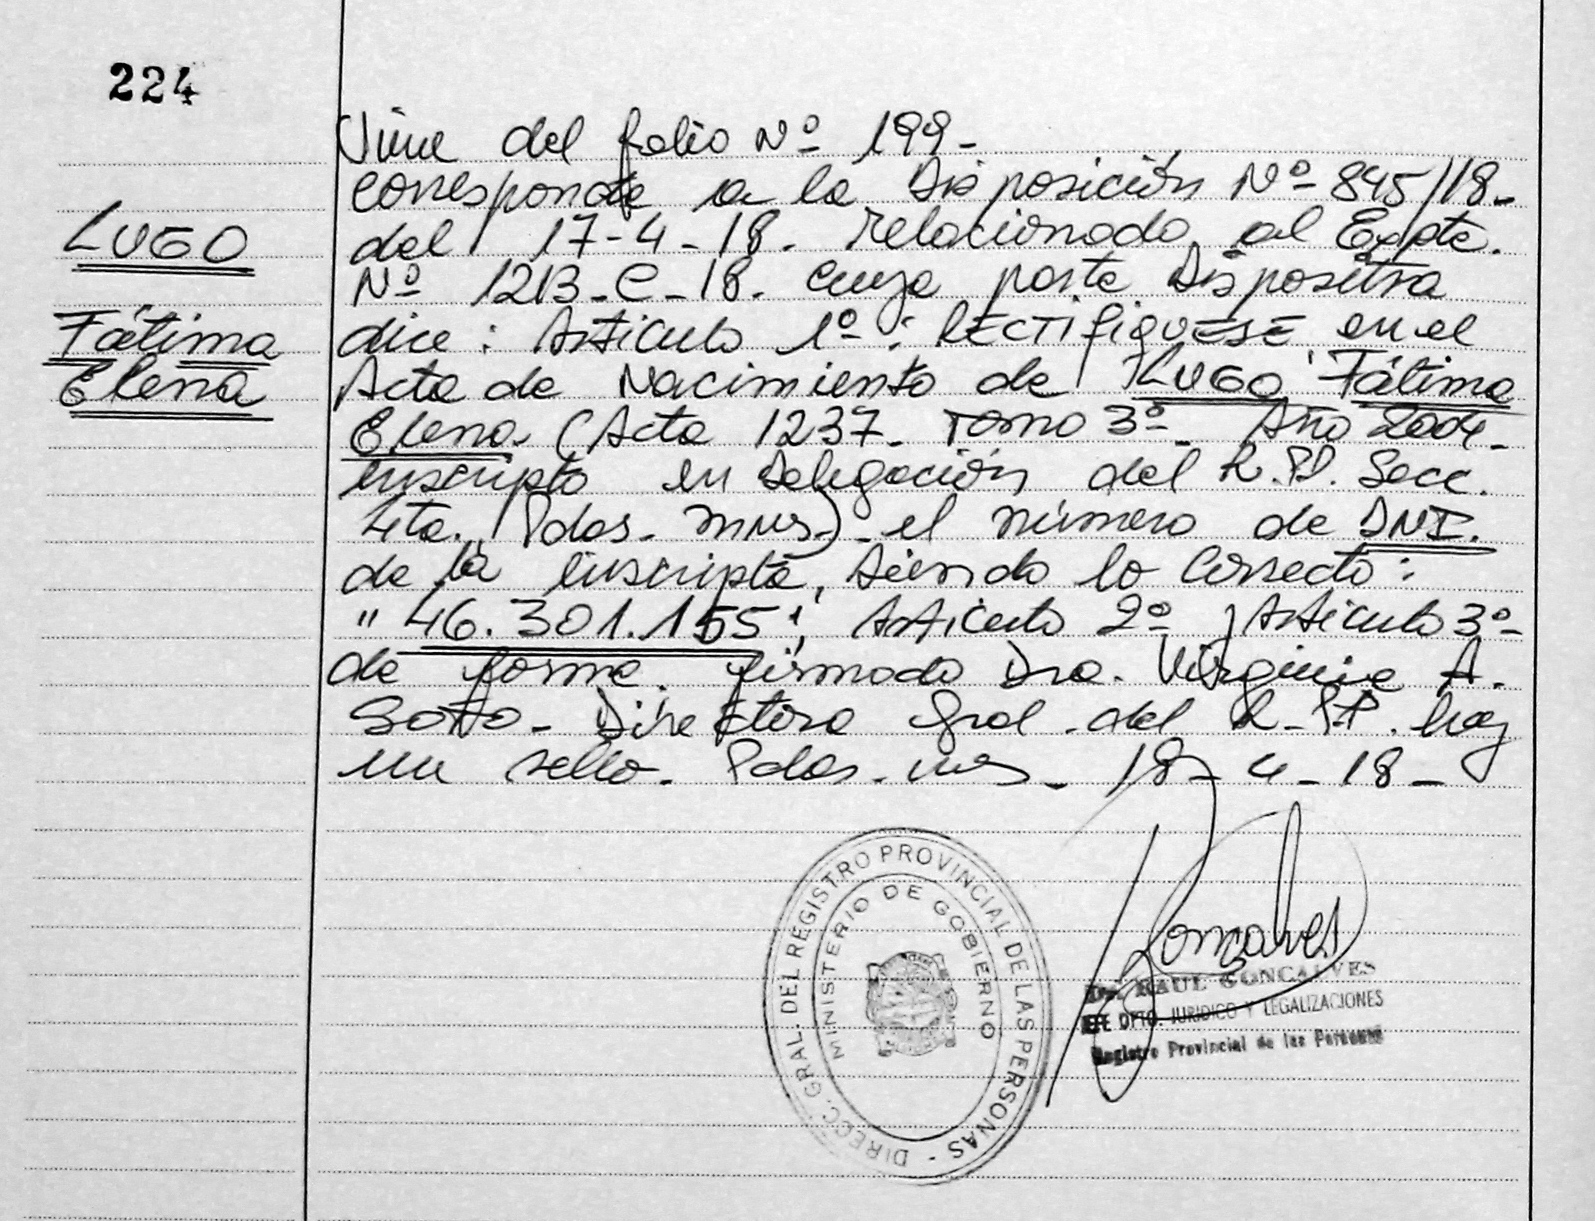 224
Viene del folio Nº 199-
corresponde a la Disposición Nº 845/18-
LUGO
del 17-4-18. relacionado al Expte.
Nº 1213-C-18. cuya parte Dispositiva
Fátima
dice: Artículo 1º: RECTIFIQUESE en el
Elena
Acta de Nacimiento de LUGO Fátima
Elena (Acta 1237- Tomo 3º- Año 2004-
inscripta en Delegación del R.P. Secc.
4ta. Pdas. Mnes)- el número de DNI.
de la inscripta, siendo lo Correcto:
"46.301.155"; Artículo 2º y Artículo 3º-
de forma. firmado Dra. Virginia A.
Sotto- Directora Gral. del R.P.P. hay
un sello. Pdas. Mnes- 18-4-18-
DIRECC. GRAL. DEL REGISTRO PROVINCIAL DE LAS PERSONAS -
MINISTERIO DE GOBIERNO
Goncalves
Dr. RAUL GONCALVES
JEFE DPTO. JURIDICO Y LEGALIZACIONES
Registro Provincial de las Personas